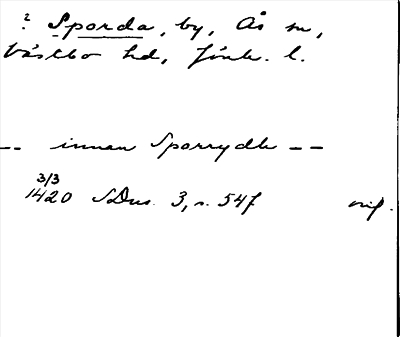 ? Sporda, by, Ås sn,
Västbo hd, Jönk. l.
-- innan Sporrydh --
3/3
1420 SDns 3, s. 547 orig.